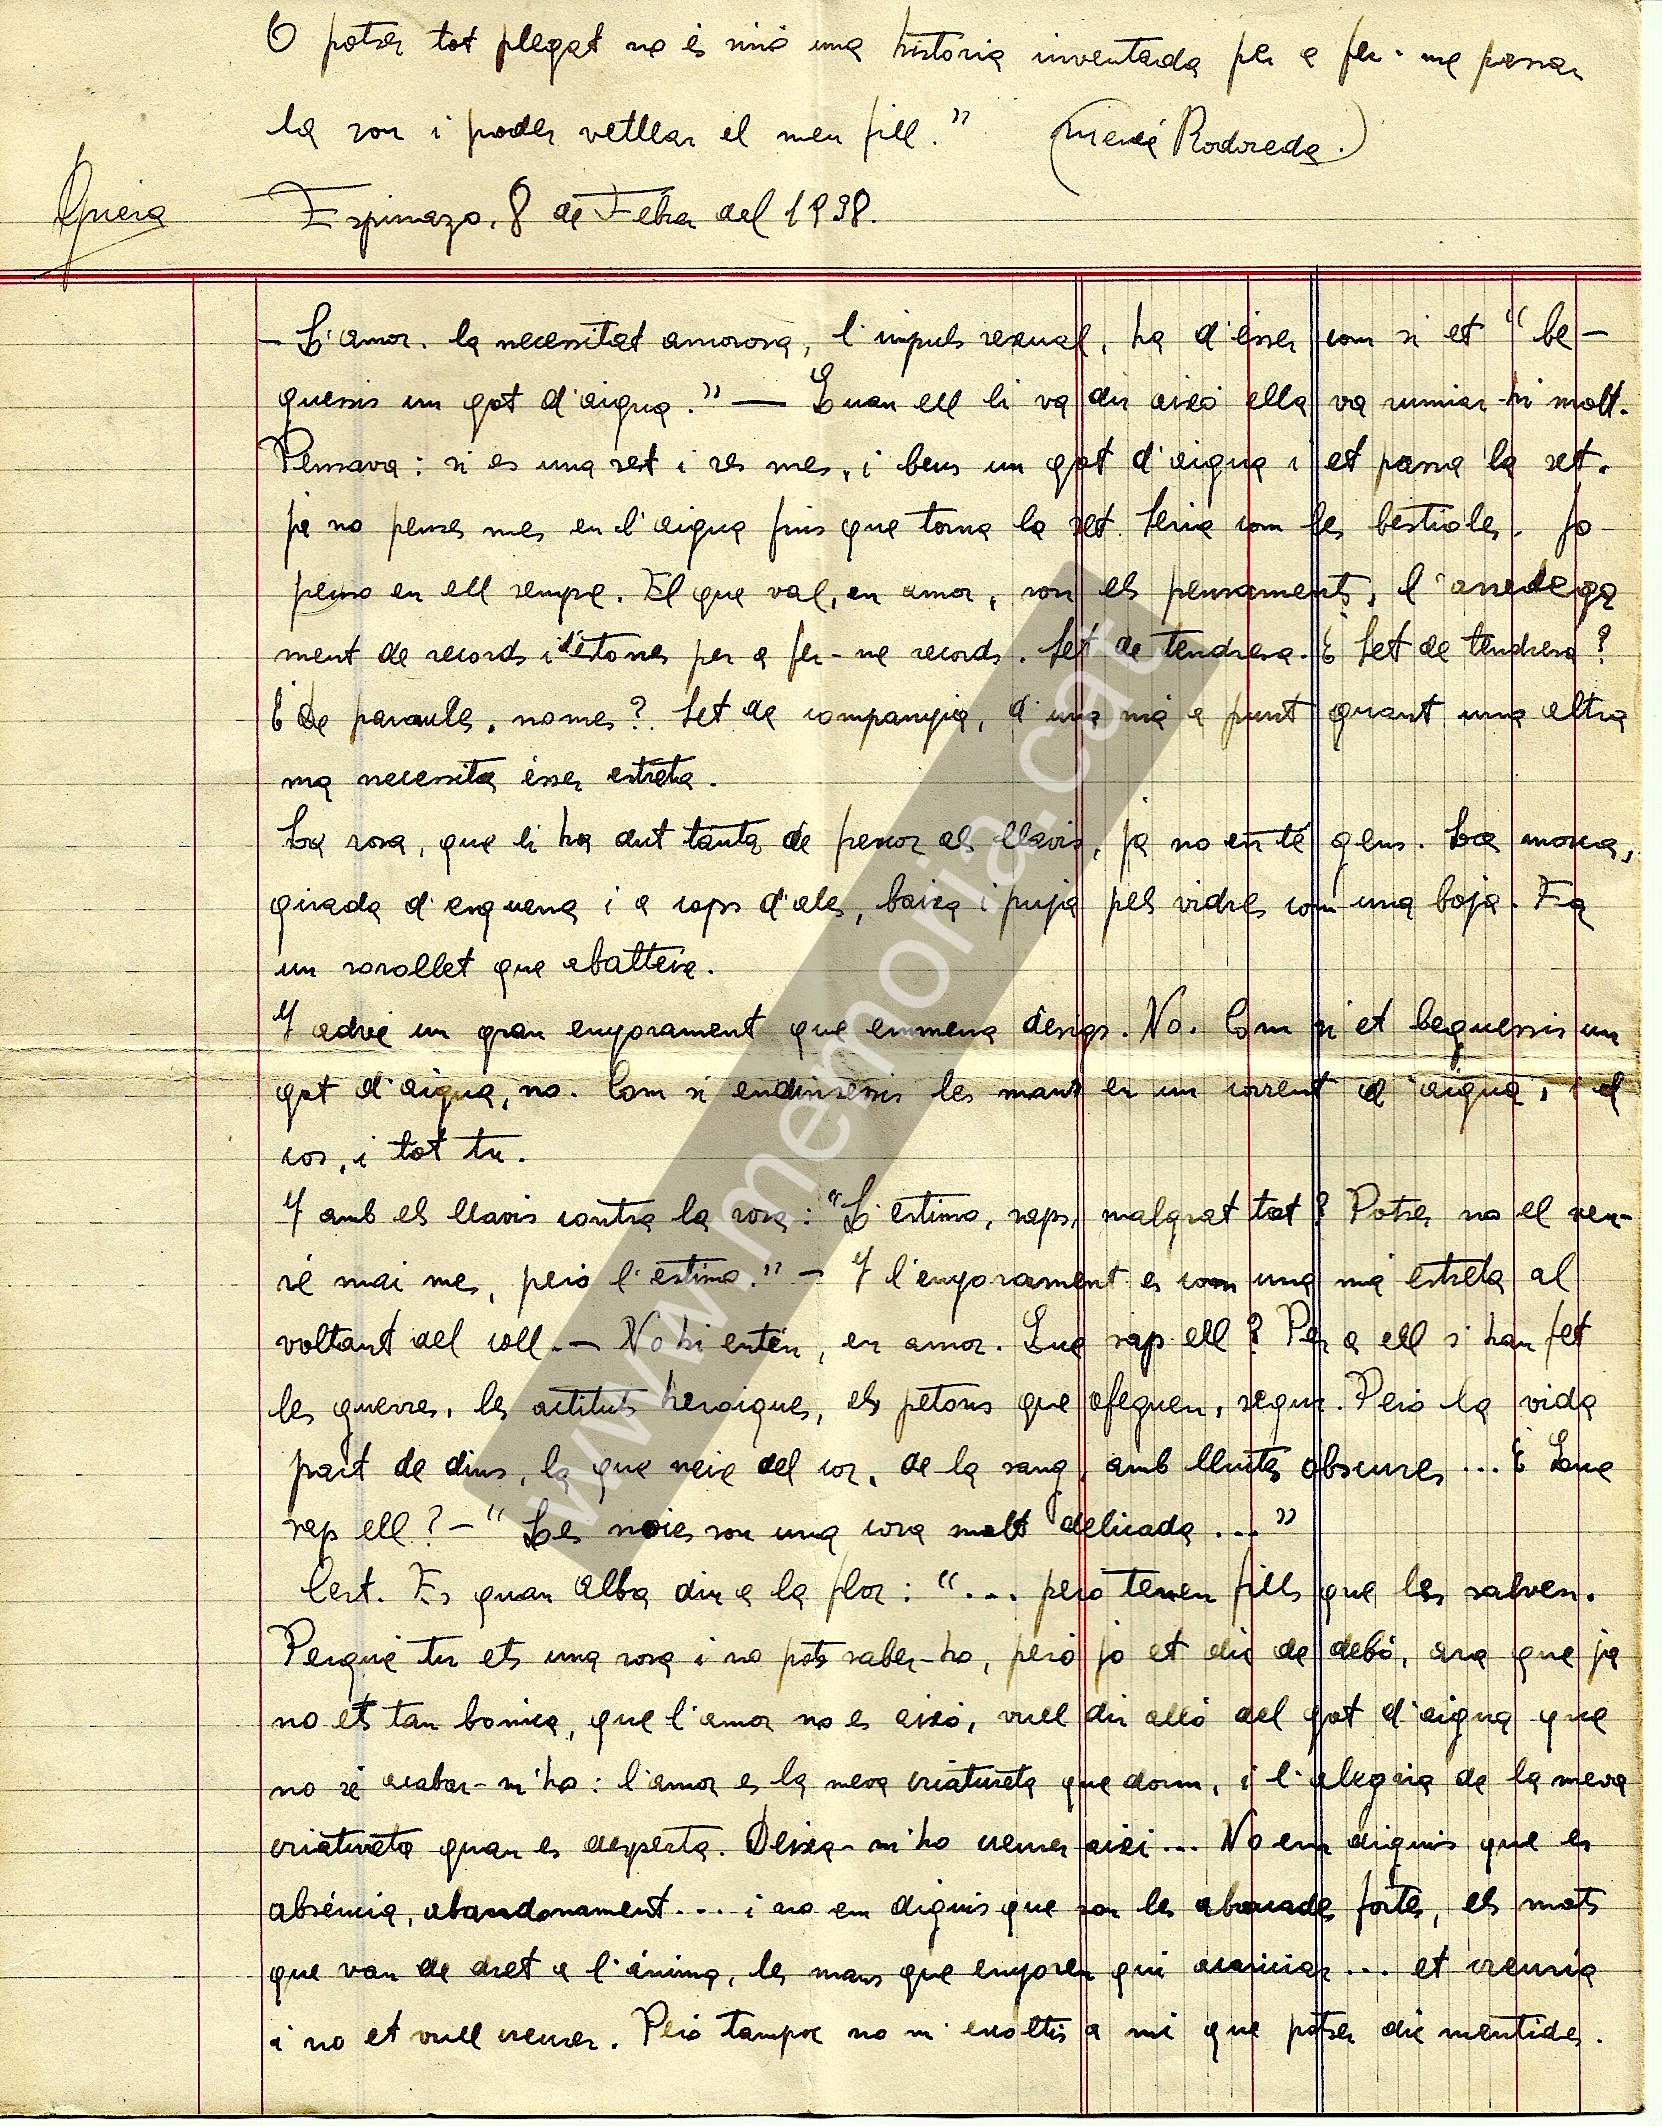 O potser tot plegat no és sinó una historia inventada per a fer-me passar
la son i poder vetllar el meu fill." (Mercé Rodoreda.)
Espinazo, 8 de Febrer del 1938.
- L'amor, la necessitat amorosa, l'impuls sexual, ha d'ésser com si et "be-
guessis un got d'aigua." — Quan ell li va dir aixó ella va rumiar-hi molt.
Pensava: si es una set i res mes, i beus un got d'aigua i et passa la set.
ja no penses mes en l'aigua fins que torna la set. Seria com les bestioles. Jo
penso en ell sempre. El que val, en amor, son els pensaments, l'assedega
ment de records i d'estones per a fer-ne records. Set de tendresa. ¿Set de tendresa?
¿De paraules, nomes? Set de companyia, d'una má a punt quant una altra
ma necessita ésser estreta.
La rosa, que li ha dut tanta de frescor als llavis, ja no en té gens. La mosca,
girada d'esquena i a cops d'ales, baixa i puja pels vidres com una boja. Fa
un sorollet que abalteix.
Y advé un gran enyorament que emmena desigs. No. Com si et beguessis un
got d'aigua, no. Com si endinsessis les mans en un corrent d'aigua, i el
cos, i tot tu.
Y amb els llavis contra la rosa: "L'estimo, saps, malgrat tot? Potser no el veu-
ré mai mes, peró l'estimo." — Y l'enyorament es com una má estreta al
voltant del coll. — No hi entén, en amor. Que sap ell? Per a ell s'han fet
les guerres, les actituts heroiques, els petons que ofeguen, segur. Peró la vida
part de dins, la que neix del cor, de la sang, amb lluites obscures ... ¿Que
sap ell? - "Les noies son una cosa molt delicada ..."
Cert. Es quan Alba diu a la flor: "... peró tenen fills que les salven.
Perqué tu ets una rosa i no pots saber-ho, peró jo et dic de debó, ara que ja
no ets tan bonica, que l'amor no es aixó, vull dir alló del got d'aigua que
no sé acabar-m'ho: l'amor es la meva criatureta que dorm, i l'alegria de la meva
criatureta quan es desperta. Deixa-m'ho creurer aixi ... No em diguis que es
abséncia, abandonament .... i no em diguis que son les abraçades fortes, els mots
que van de dret a l'ánima, les mans que enyoren qui acariciar ... et creuria
i no et vull creurer. Peró tampoc no m'escoltis a mi que potser dic mentides.
www.memoria.cat